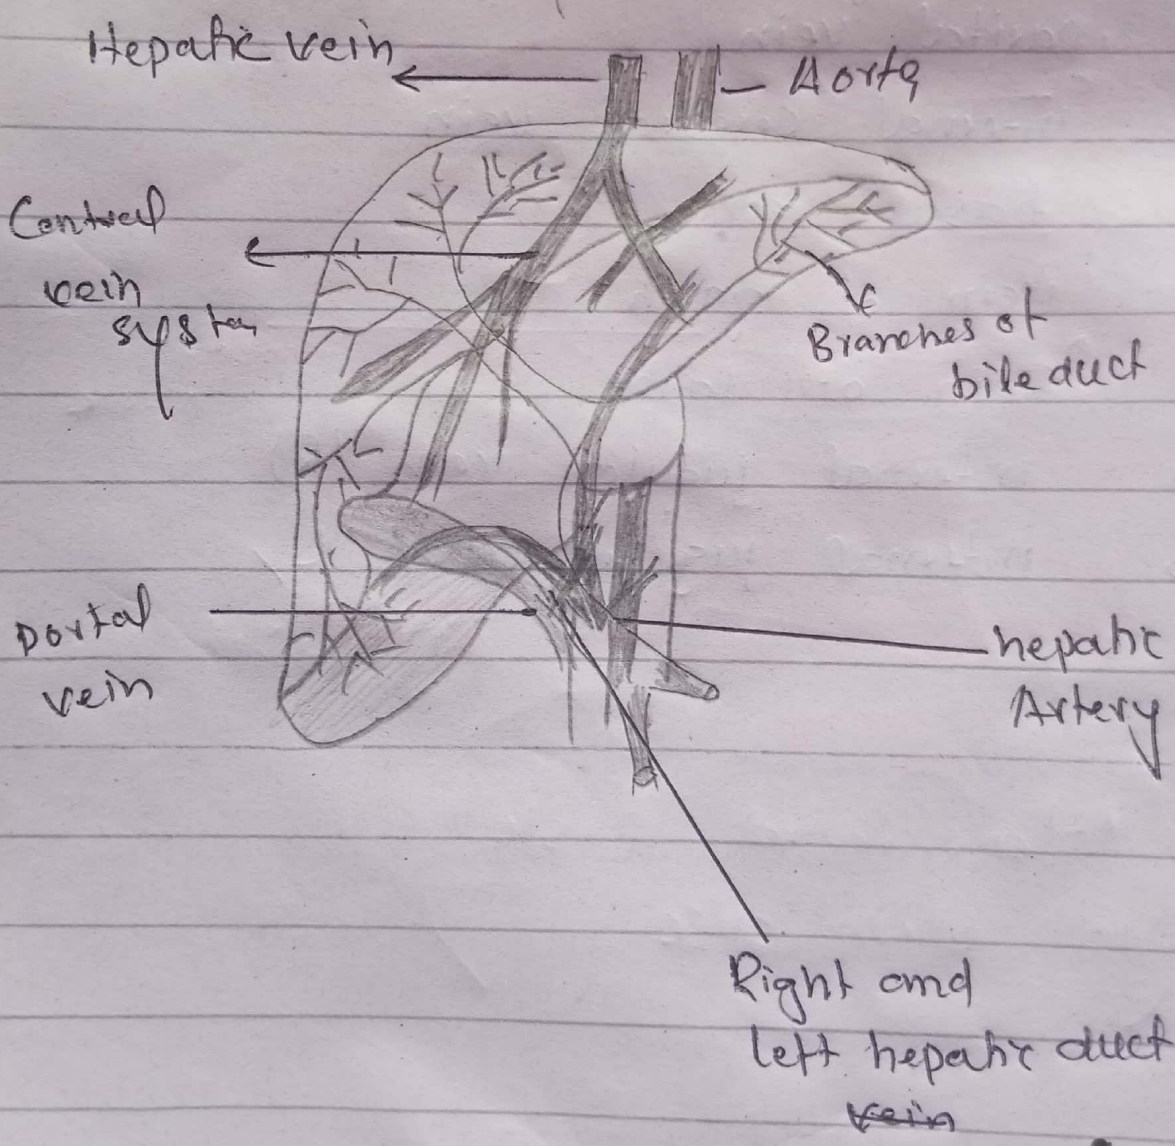 Hepatic vein
Aorta
Central
vein
system
Branches of
bile duct
portal
vein
hepatic
Artery
Right and
left hepatic duct
vein